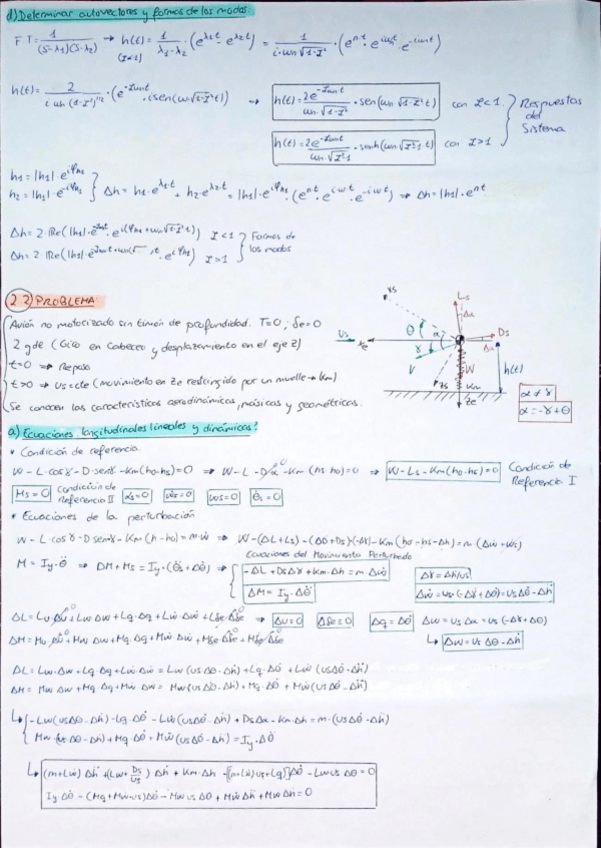 d) Determinar autovectores y formas de los modos.
FT = 1/((S-λ1)(S-λ2)) → h(t) = 1/(λ1-λ2) · (e^λ1t - e^λ2t) = 1/(i·ωn√(1-ξ²)) · (e^nt · e^iωt · e^-iωt)
(ξ≠1)
h(t) = 2/(i ωn (1-ξ²)^1/2) · (e^-ξωnt · i sen(ωn√(1-ξ²)t) → h(t) = 2e^-ξωnt/(ωn·√(1-ξ²)) · sen(ωn√(1-ξ²)t) con ξ<1
h(t) = 2e^-ξωnt/(ωn·√(ξ²-1)) · senh(ωn√(ξ²-1)t) con ξ>1
Respuestas
del
Sistema
h1 = |h1|·e^iφh1
h2 = |h1|·e^-iφh1 } Δh = h1·e^λ1t + h2·e^λ2t = |h1|·e^iφh1 · (e^nt · e^iωt · e^-iωt) ⇒ Δh = |h1|·e^nt
Δh = 2 Re(|h1|·e^-ξωnt · e^i(φh1+ωn√(1-ξ²)t)) ξ<1
Formas de
los modos
ξ>1
2.2) PROBLEMA:
Avión no motorizado sin timón de profundidad. T=0; δe=0
2 gdl (Giro en Cabeceo y desplazamiento en el eje Z)
t=0 ⇒ Reposo
t>0 ⇒ Us=cte (movimiento en Ze restringido por un muelle → Km)
Se conocen las características aerodinámicas, másicas y geométricas.
xs
Ls
Δu
Ds
Us
xe
θ
α
γ
V
W
Km
zs
ze
h(t)
α≠γ
α=-γ+θ
a) Ecuaciones longitudinales lineales y dinámicas:
* Condición de referencia
W-L·cosγ-D·senγ-Km(h0-hs)=0 ⇒ W-L-D/α-Km(hs-h0)=0 ⇒ W-Ls-Km(h0-hs)=0 Condición de
Referencia I
Ms=0 Condición de
Referencia II αs=0 ws=0 θ̇s=0
* Ecuaciones de la perturbación
W-L·cosγ-D senγ-Km(h-h0)=m·ẇ ⇒ W-(ΔL+Ls)-(ΔD+Ds)(-Δγ)-Km(h0-hs-Δh)=m·(Δẇ+ẇs)
Ecuaciones del Movimiento Perturbado
M=Iy·θ̈ ⇒ ΔM+Ms=Iy·(θ̈s+Δθ̈) ⇒ { -ΔL+DsΔγ+Km·Δh=m·Δẇ
ΔM=Iy·Δθ̈
Δγ=Δḣ/us
Δẇ=us·(-Δγ̇+Δθ̇)=usΔθ̇-Δḧ
ΔL=Lu·Δu+LwΔw+Lq·Δq+Lẇ·Δẇ+LδeΔδe ⇒ Δu=0 Δδe=0 Δq=Δθ̇ Δw=usΔα=us(-Δγ+Δθ)
↳ Δw=usΔθ-Δḣ
ΔL=Lw·Δw+Lq·Δq+LẇΔẇ=Lw(usΔθ-Δḣ)+Lq·Δθ̇+Lẇ(usΔθ̇-Δḧ)
ΔM=MwΔw+MqΔq+MẇΔẇ=Mw(usΔθ-Δḣ)+Mq·Δθ̇+Mẇ(usΔθ̇-Δḧ)
Mw·(usΔθ-Δḣ)+Mq·Δθ̇+Mẇ(usΔθ̇-Δḧ)=Iy·Δθ̈
↳ (m+Lẇ)Δḧ+(Lw+Ds/us)Δḣ+Km·Δh-[(m+Lẇ)us+Lq]Δθ̇-LwusΔθ=0
Iy·Δθ̈-(Mq+Mẇ·us)Δθ̇-MwusΔθ+MẇΔḧ+MwΔḣ=0